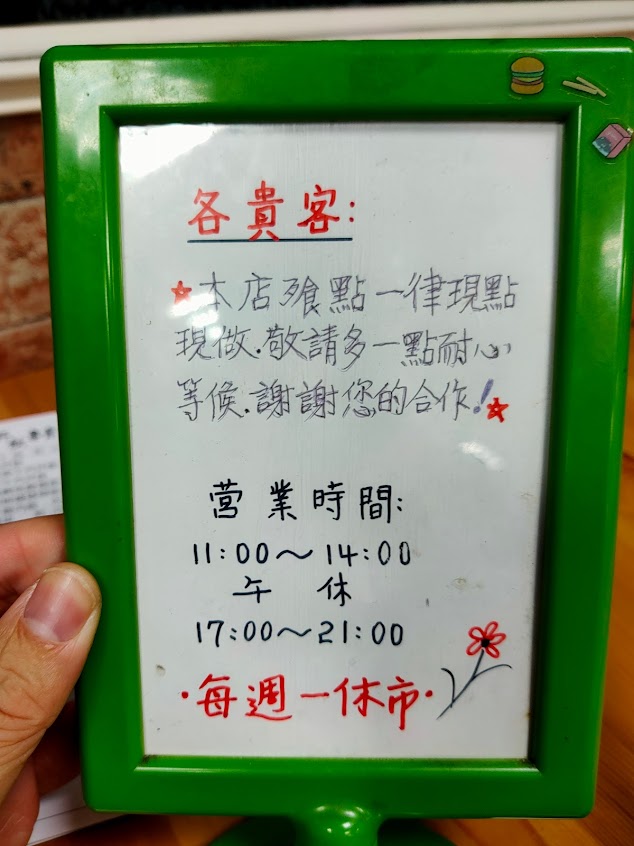 各貴客:
本店飱點一律現點
現做.敬請多一點耐心
等候.謝謝您的合作!
营業時間:
11:00~14:00
午 休
17:00~21:00
·每週一休市·